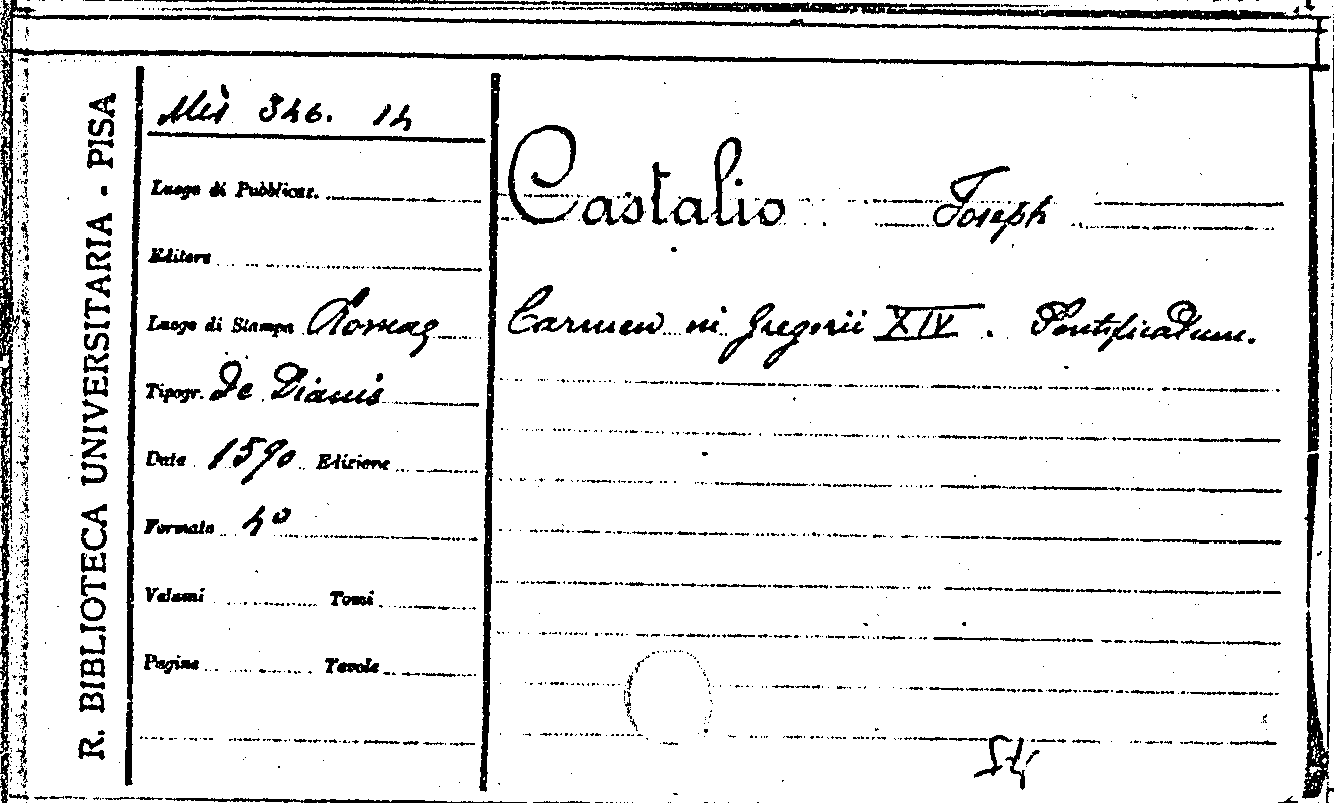 R. BIBLIOTECA UNIVERSITARIA - PISA
Mis 346. 14
Luogo di Pubblicaz.
Editore
Luogo di Stampa Romae
Tipogr. De Dianis
Data 1590 Edizione
Formato 4º
Volumi Tomi
Pagine Tavole
Castalio Joseph
Carmen in Gregorii XIV. Pontificatum.